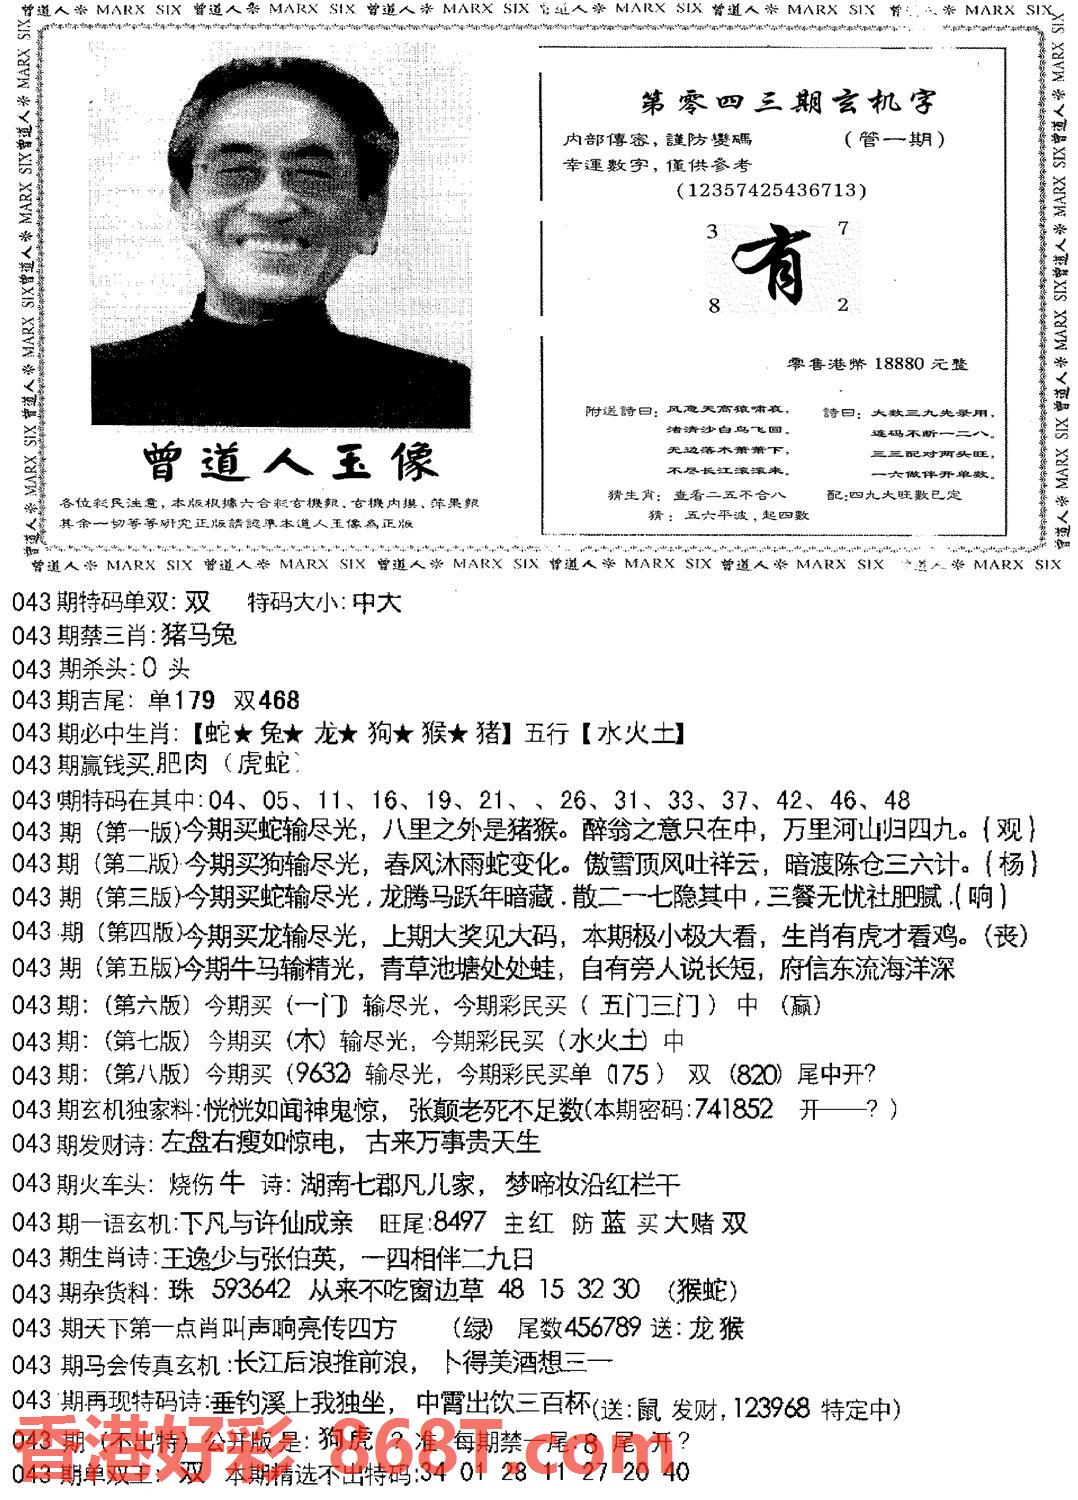 曾道人※ MARX SIX 曾道人※ MARX SIX 曾道人※ MARX SIX 曾道人※ MARX SIX 曾道人※ MARX SIX 曾道人※ MARX SIX
第零四三期玄机字
内部傳密，謹防變碼 （管一期）
幸運數字，僅供參考
(12357425436713)
3 7
有
8 2
零售港幣 18880 元整
附送詩曰：风急天高猿啸哀，
渚清沙白鸟飞回。
无边落木萧萧下，
不尽长江滚滚来。
詩曰：大数三九先录用，
连码不断一二八。
三三配对两头旺，
一六做伴开单数。
猜生肖：查看二五不合八 配:四九大旺數已定
猜：五六平波，起四數
曾道人玉像
各位彩民注意，本版根據六合彩玄機報、玄機内摸、萍果報
其余一切等等研究正版請認準本道人玉像為正版
曾道人※ MARX SIX 曾道人※ MARX SIX 曾道人※ MARX SIX 曾道人※ MARX SIX 曾道人※ MARX SIX ※ MARX SIX
043期特码单双：双 特码大小：中大
043期禁三肖：猪马兔
043期杀头：0 头
043期吉尾：单179 双468
043期必中生肖：【蛇★兔★龙★狗★猴★猪】五行【水火土】
043期赢钱买.肥肉（虎蛇）
043期特码在其中：04、05、11、16、19、21、、26、31、33、37、42、46、48
043期（第一版)今期买蛇输尽光，八里之外是猪猴。醉翁之意只在中，万里河山归四九。(观)
043期（第二版)今期买狗输尽光，春风沐雨蛇变化。傲雪顶风吐祥云，暗渡陈仓三六计。(杨)
043期（第三版)今期买蛇输尽光，龙腾马跃年暗藏.散二一七隐其中，三餐无忧社肥腻.(响)
043期（第四版)今期买龙输尽光，上期大奖见大码，本期极小极大看，生肖有虎才看鸡。(丧)
043期（第五版)今期牛马输精光，青草池塘处处蛙，自有旁人说长短，府信东流海洋深
043期：（第六版）今期买（一门）输尽光，今期彩民买（五门三门）中 （赢）
043期：（第七版）今期买（木）输尽光，今期彩民买（水火土）中
043期：（第八版）今期买（9632）输尽光，今期彩民买单（175） 双（820）尾中开?
043期玄机独家料：恍恍如闻神鬼惊， 张颠老死不足数(本期密码：741852 开——？)
043期发财诗：左盘右蹙如惊电， 古来万事贵天生
043期火车头：烧伤牛 诗：湖南七郡凡几家， 梦啼妆沿红栏干
043期一语玄机：下凡与许仙成亲 旺尾:8497 主红 防蓝 买大赌双
043期生肖诗：王逸少与张伯英，一四相伴二九日
043期杂货料：珠 593642 从来不吃窗边草 48 15 32 30 （猴蛇）
043期天下第一点肖叫声响亮传四方 （绿） 尾数456789 送：龙猴
043期马会传真玄机：长江后浪推前浪， 卜得美酒想三一
043期再现特码诗：垂钓溪上我独坐， 中霄出饮三百杯(送：鼠 发财，123968 特定中)
043期（不出特）公开版是：狗虎？准 每期禁一尾:8 尾 开？
043期单双王：双 本期精选不出特码：34 01 28 11 27 20 40
香港好彩 868T.com